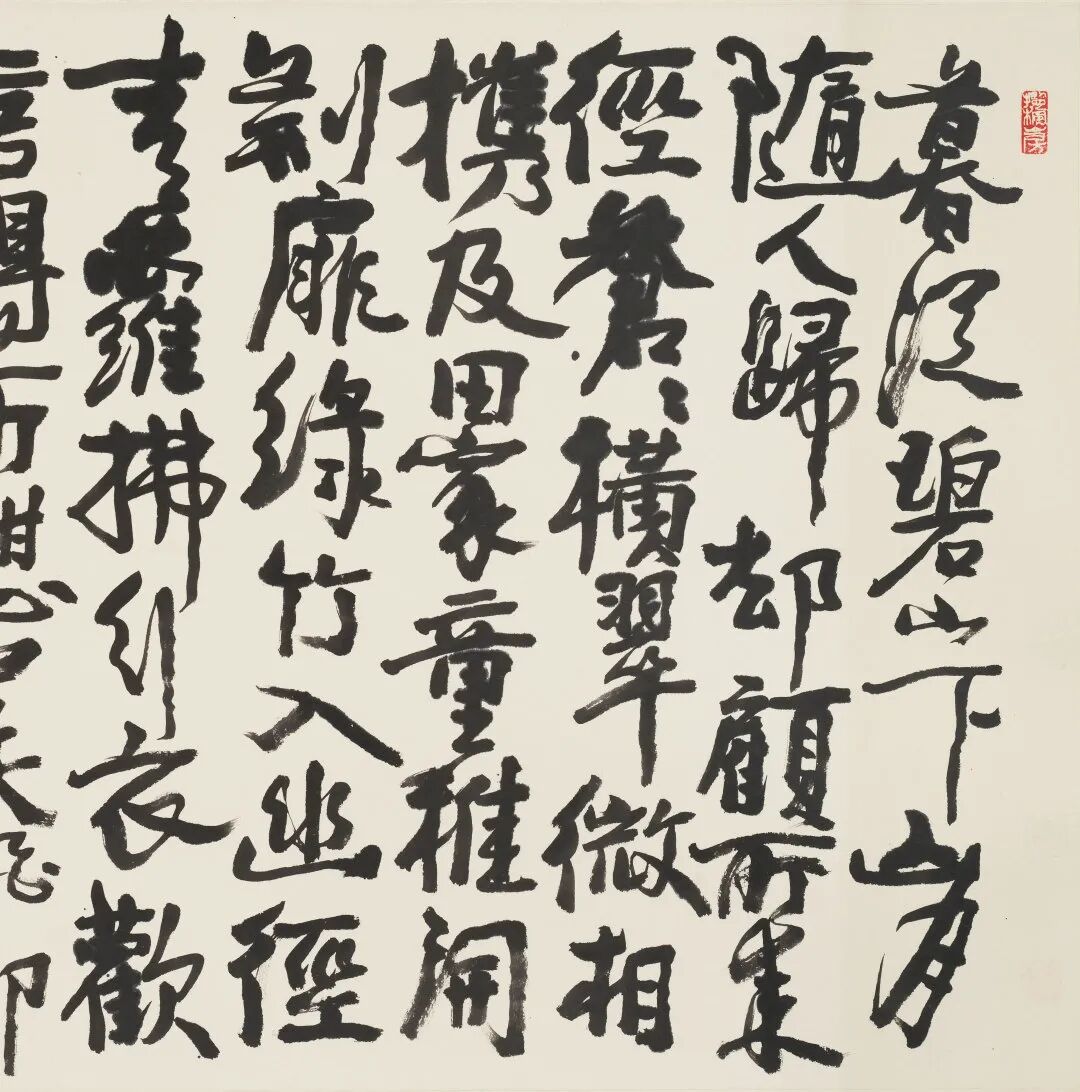 暮從碧山下山月
隨人歸却顧所來
徑蒼〻橫翠微相
攜及田家童稚開
荊扉綠竹入幽徑
青蘿拂行衣歡
言得所憩